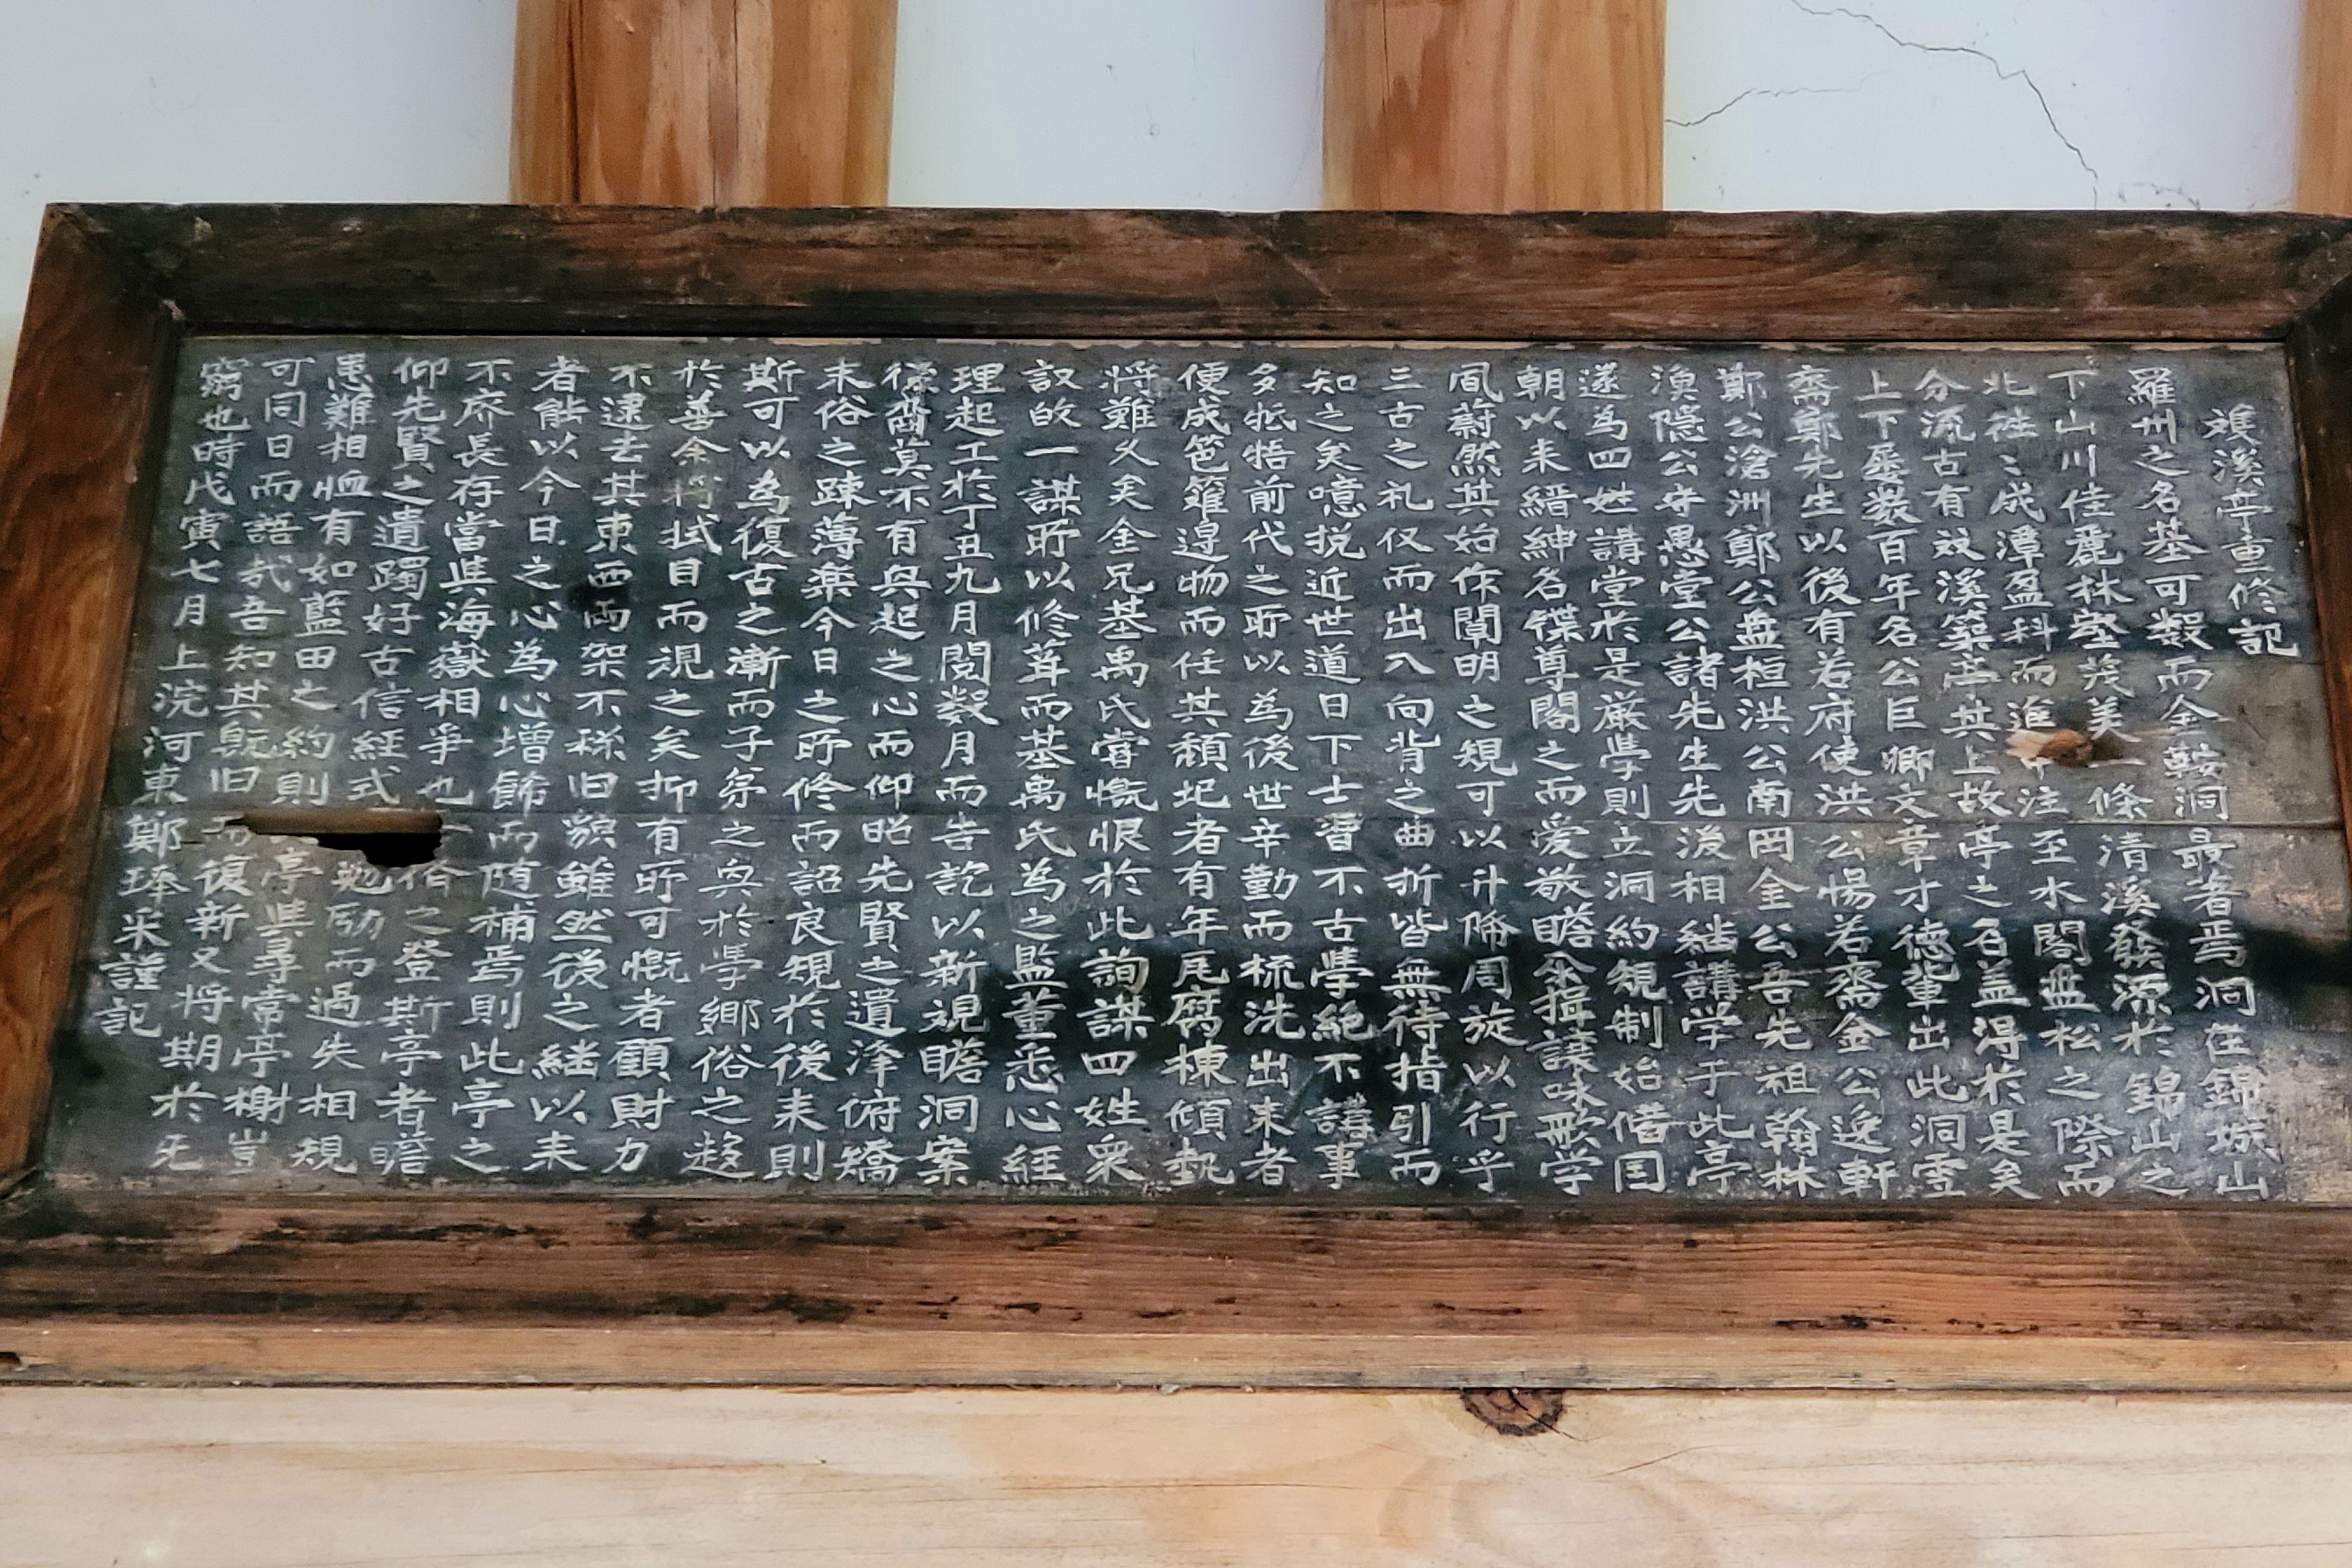 雙溪亭重修記
羅州之名基可數而金鞍洞最者焉洞在錦城山
下山川佳麗林壑茂美一條清溪發源於錦山之
北往〻成潭盈科而進注至水閣盤松之際而
分流古有双溪築亭其上故亭之名盖得於是矣
上下屡数百年名公巨卿文章才德輩出此洞雪
齋鄭先生以後有若府使洪公惕若齋金公逸軒
鄭公滄洲鄭公盘桓洪公南岡金公吾先祖翰林
漁隱公守愚堂公諸先生先後相継講学于此亭
遂為四姓講堂於是嚴學則立洞約規制始備国
朝以来縉紳名碟尊閣之而爱敬瞻余揖讓味歌学
風蔚然其始作闡明之規可以升降周旋以行乎
三古之礼仪而出入向背之曲折皆無待指引而
知之矣噫挽近世道日下士習不古學絶不講事
多牴牾前代之所以為後世辛勤而梳洗出末者
便成笆籬邉物而任其頹圮者有年瓦腐棟傾埶
将難久矣金兄基禹氏甞慨恨於此詢謀四姓衆
議故一謀所以修葺而基禹氏為之監董悉心經
理起工於丁丑九月閲数月而告訖以新視瞻洞案
後裔莫不有興起之心而仰昭先賢之遺泽俯矯
末俗之踈薄薬今日之所修而詔良規於後来則
斯可以為復古之漸而子弟之與於學鄉俗之趍
於善余将拭目而視之矣抑有所可慨者顧財力
不逮去其東西两架不称旧貌雖然後之継以来
者能以今日之心為心增餙而随補焉則此亭之
不庥長存當與海嶽相爭也之
仰先賢之遺躅好古信経式俗之登斯亭者瞻
患難相恤有如藍田之約則勉励而過失相規
可同日而語哉吾知其既旧而亭與尋常亭榭豈
窮也時戊寅七月上浣河東鄭琫采謹記復新又将期於无